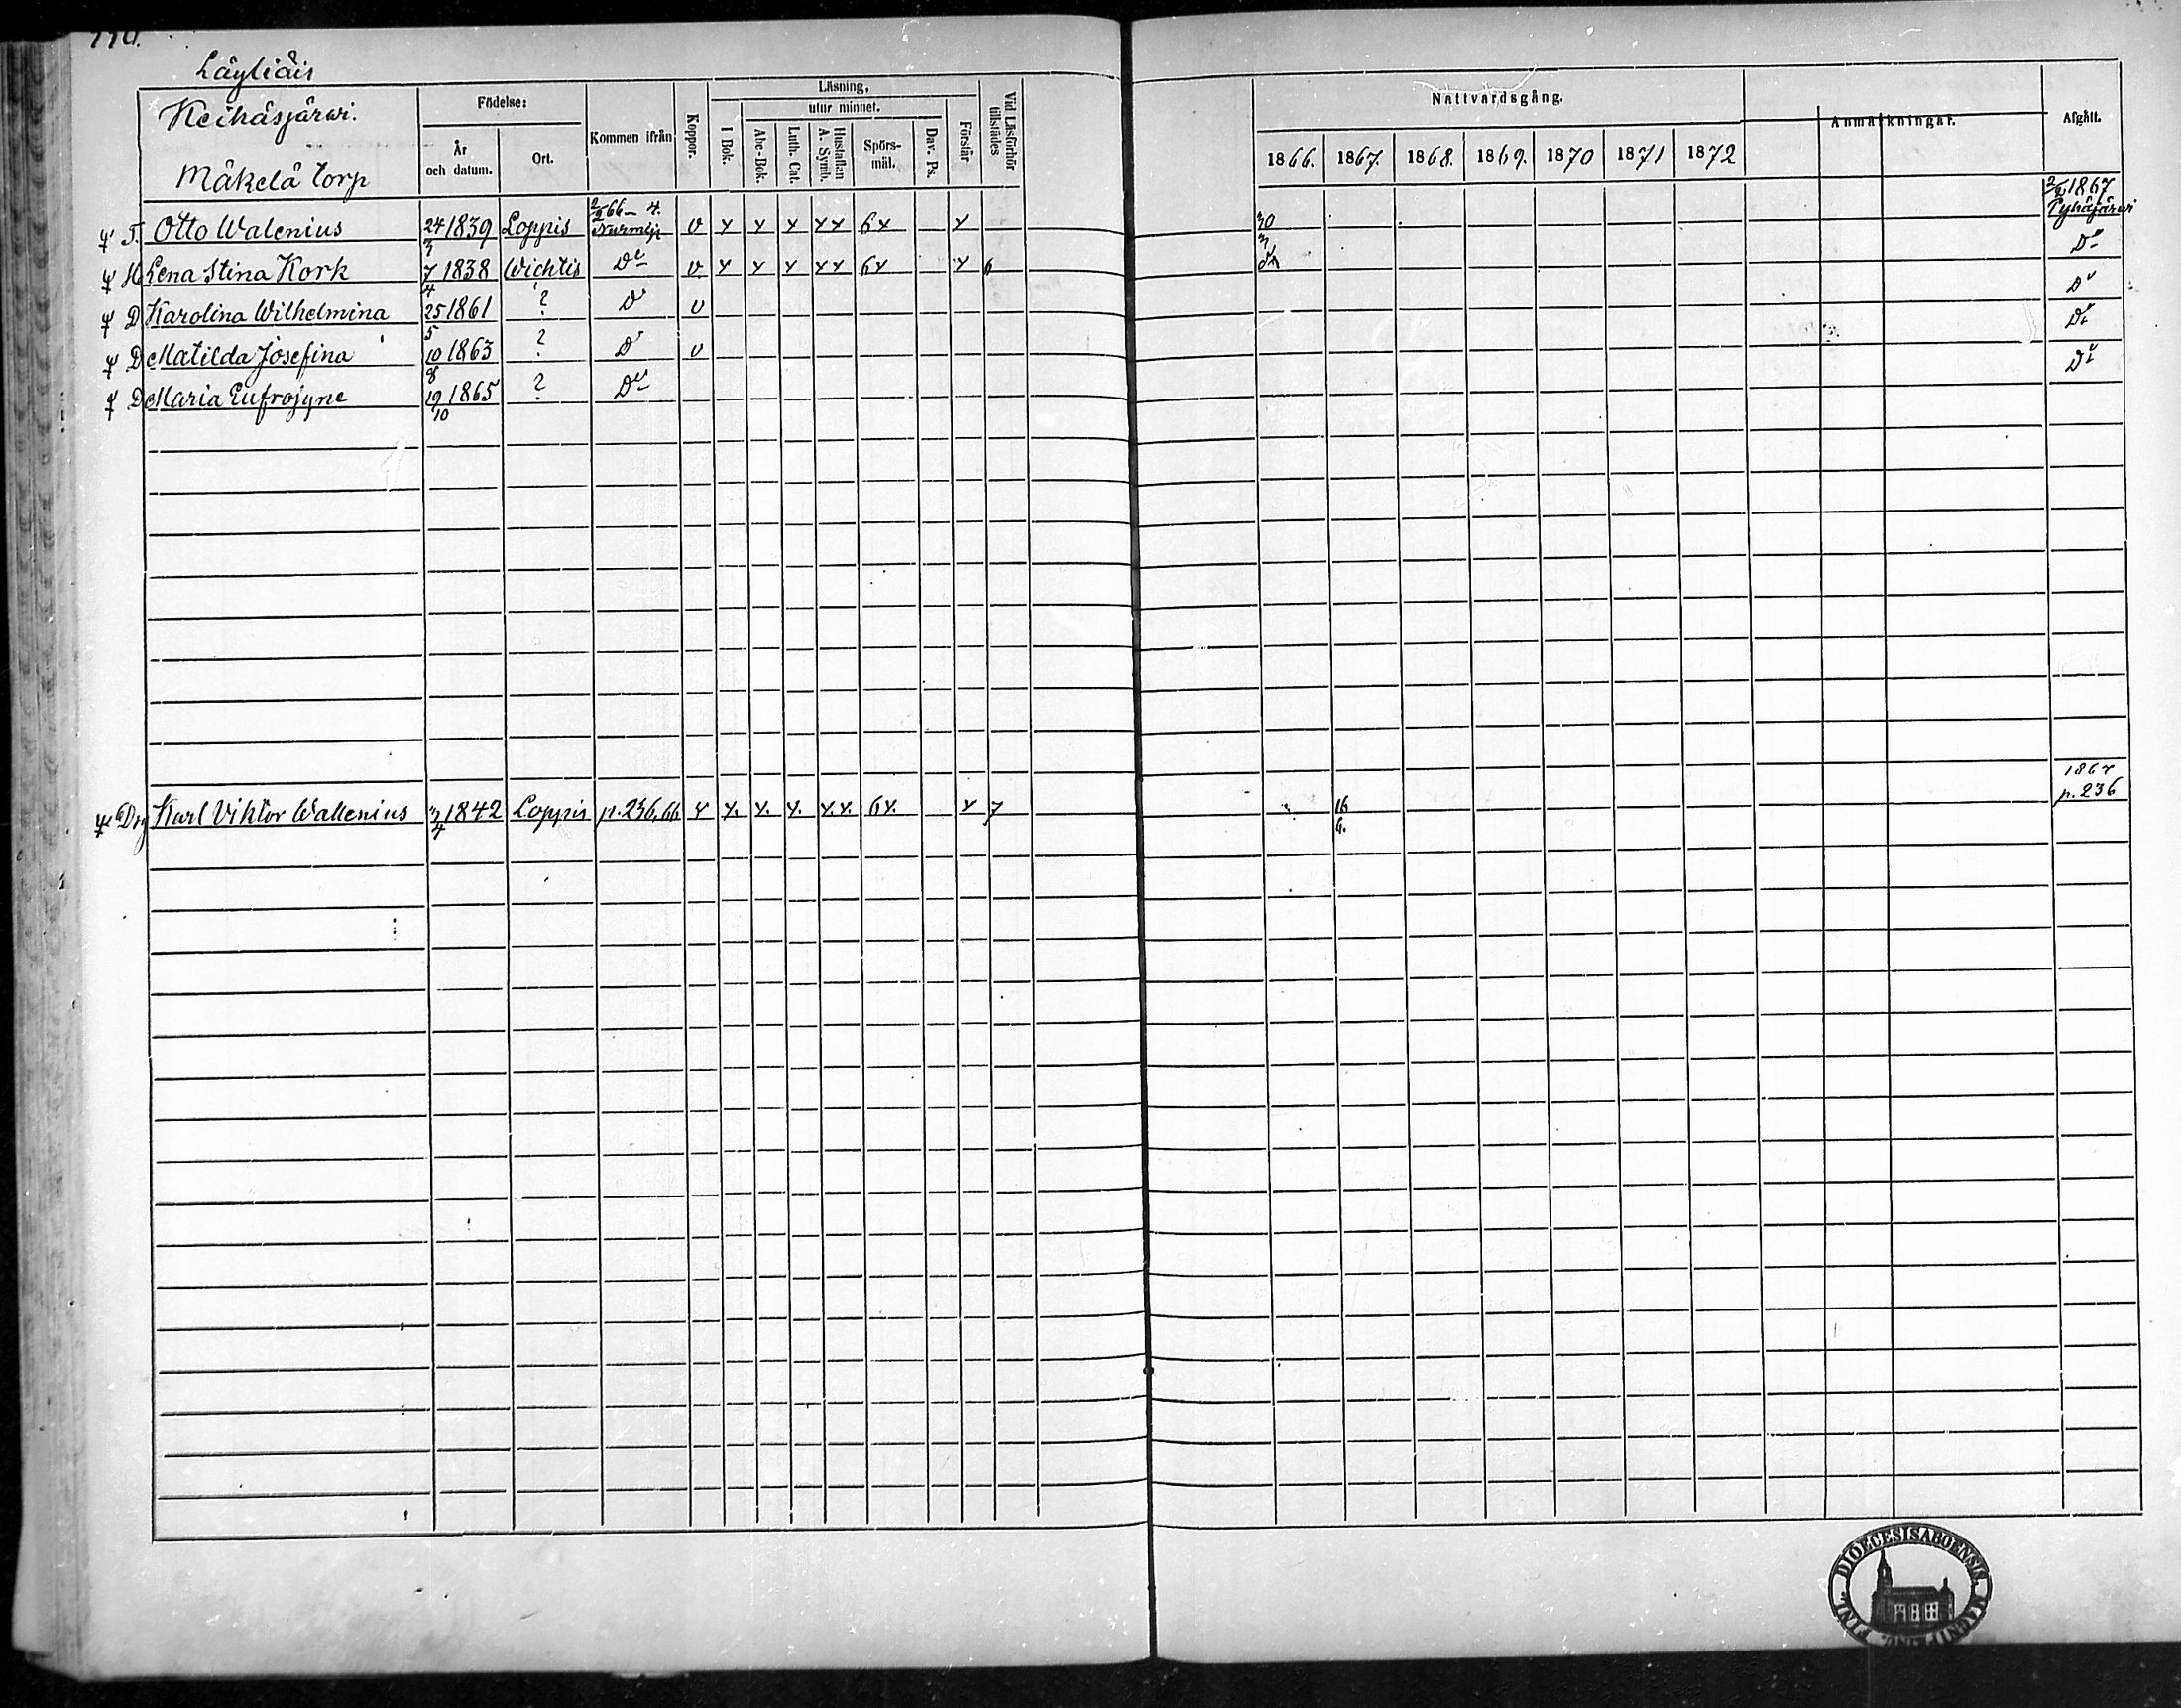 Läyliäis
Keihäsjärwi.
Mäkelä torp
Födelse:
År och datum.
Ort.
Kommen ifrån
Koppor.
Läsning,
utur minnet.
I Bok.
Abc-Bok.
Luth. Cat.
Hustaflan A. Symb.
Spörs-mål.
Dav. Ps.
Förstår
Vid Läsförhör tillstädes
Nattvardsgång.
1866. 1867. 1868. 1869. 1870 1871 1872
Anmärkningar.
Afgått.
T. Otto Walenius 24/3 1839 Loppis 2/2 66 – 4. Nurmijr v x x x x x 6 x x 30 1867 Pyhäjärwi
H Lena Stina Kork 7/4 1838 Wichtis Do v x x x x x 6 x x 6 Do
D Karolina Wilhelmina 25/5 1861 ? Do v Do
D Matilda Josefina 10/8 1863 ? Do v Do
D Maria Eufrosyne 19/10 1865 ? Do Do
1867
Drg Karl Viktor Wallenius 1842 Loppis p. 236, 66 x x. x. x. x. x. 6 x. x 7 16/6. p. 236
DIOECESIS ABOENSIS. MAGNI FINL.